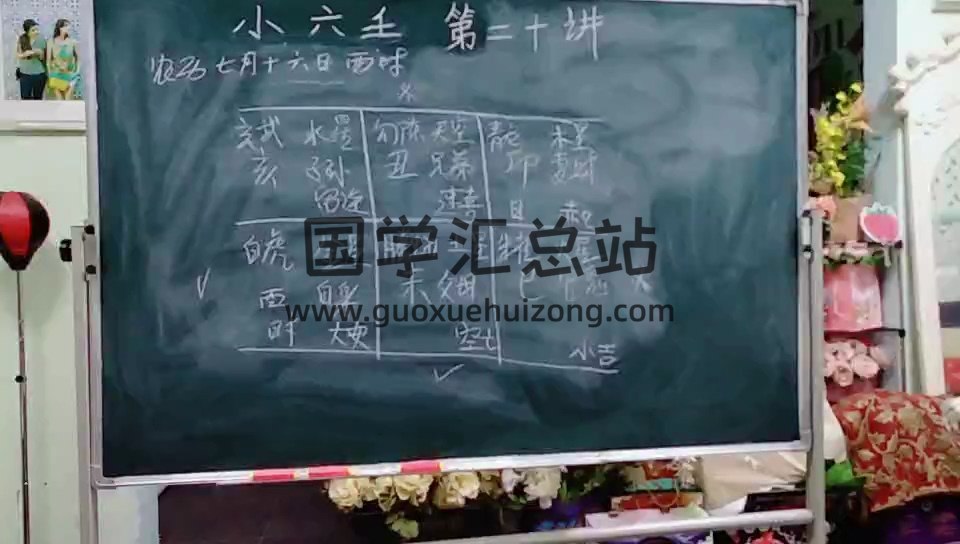 小六壬 第二十讲
农历七月十六日酉时
玄武 水星 勾陈 天空 青龙 木星
亥 子孙 丑 兄弟 卯 妻财
留连 速喜 日
白虎 土星 朱雀
酉 自身 未 父母 巳
时 大安 空亡 小吉
国学汇总站
www.guoxuehuizong.com